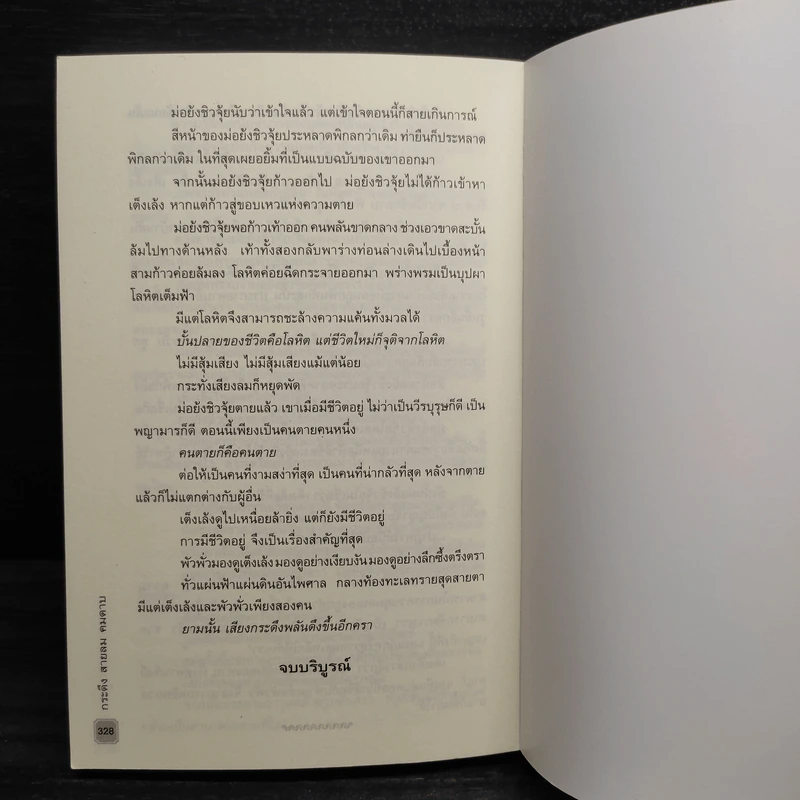 ม่อยังชิวจุ้ยนับว่าเข้าใจแล้ว แต่เข้าใจตอนนี้ก็สายเกินการณ์
สีหน้าของม่อยังชิวจุ้ยประหลาดพิกลกว่าเดิม ท่ายืนก็ประหลาด
พิกลกว่าเดิม ในที่สุดเผยอยิ้มที่เป็นแบบฉบับของเขาออกมา
จากนั้นม่อยังชิวจุ้ยก้าวออกไป ม่อยังชิวจุ้ยไม่ได้ก้าวเข้าหา
เต็งเล้ง หากแต่ก้าวสู่ขอบเหวแห่งความตาย
ม่อยังชิวจุ้ยพอก้าวเท้าออก คนพลันขาดกลาง ช่วงเอวขาดสะบั้น
ล้มไปทางด้านหลัง เท้าทั้งสองกลับพาร่างท่อนล่างเดินไปเบื้องหน้า
สามก้าวค่อยล้มลง โลหิตค่อยฉีดกระจายออกมา พร่างพรมเป็นบุปผา
โลหิตเต็มฟ้า
มีแต่โลหิตจึงสามารถชะล้างความแค้นทั้งมวลได้
บั้นปลายของชีวิตคือโลหิต แต่ชีวิตใหม่ก็จุติจากโลหิต
ไม่มีสุ้มเสียง ไม่มีสุ้มเสียงแม้แต่น้อย
กระทั่งเสียงลมก็หยุดพัด
ม่อยังชิวจุ้ยตายแล้ว เขาเมื่อมีชีวิตอยู่ ไม่ว่าเป็นวีรบุรุษก็ดี เป็น
พญามารก็ดี ตอนนี้เพียงเป็นคนตายคนหนึ่ง
คนตายก็คือคนตาย
ต่อให้เป็นคนที่งามสง่าที่สุด เป็นคนที่น่ากลัวที่สุด หลังจากตาย
แล้วก็ไม่แตกต่างกับผู้อื่น
เต็งเล้งดูไปเหนื่อยล้ายิ่ง แต่ก็ยังมีชีวิตอยู่
การมีชีวิตอยู่ จึงเป็นเรื่องสำคัญที่สุด
พัวพั่วมองดูเต็งเล้ง มองดูอย่างเงียบงัน มองดูอย่างลึกซึ้งตรึงตรา
ทั่วแผ่นฟ้าแผ่นดินอันไพศาล กลางท้องทะเลทรายสุดสายตา
มีแต่เต็งเล้งและพัวพั่วเพียงสองคน
ยามนั้น เสียงกระดึงพลันดังขึ้นอีกครา
จบบริบูรณ์
กระดึง สายลม คมดาบ
328